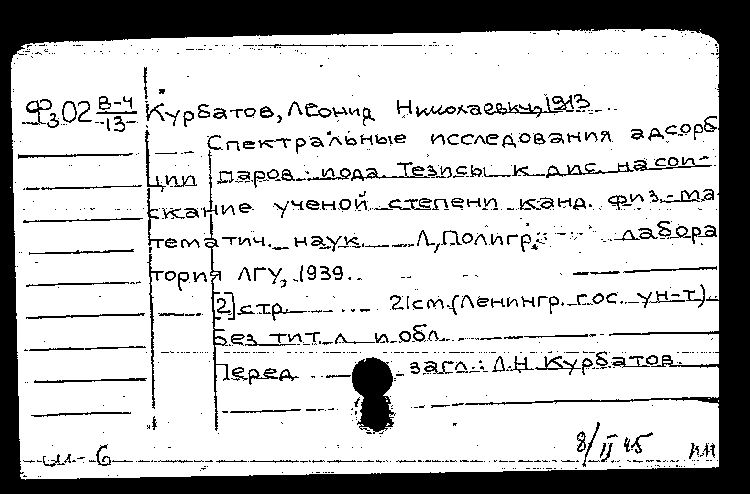 Фз02 В-4 Курбатов, Леонид Николаевич, 1913
-13-
Спектральные исследования адсорб
ции паров иода. Тезисы к дис. на сои-
скание ученой степени канд. физ.-ма
тематич. наук Л, Полигр. лабора
тория ЛГУ, 1939.
[2] стр. 21 см. (Ленингр. гос. ун-т).
Без тит. л. и обл.
Перед загл.: Л.Н. Курбатов.
8/II 45